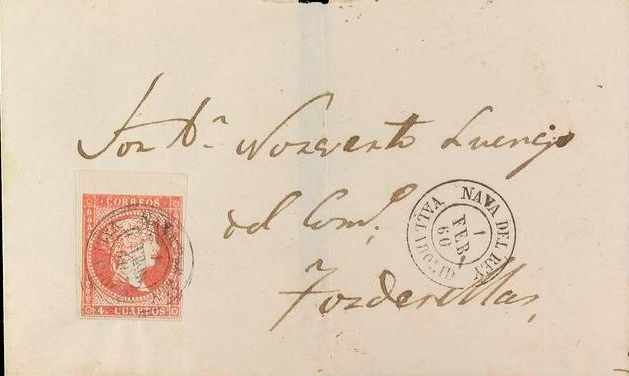 Sor Dn. Norverto Luengo
del Comº.
Tordecillas
CORREOS
4. CUARTOS
NAVA DEL REY
1
FEB
60
VALLADOLID